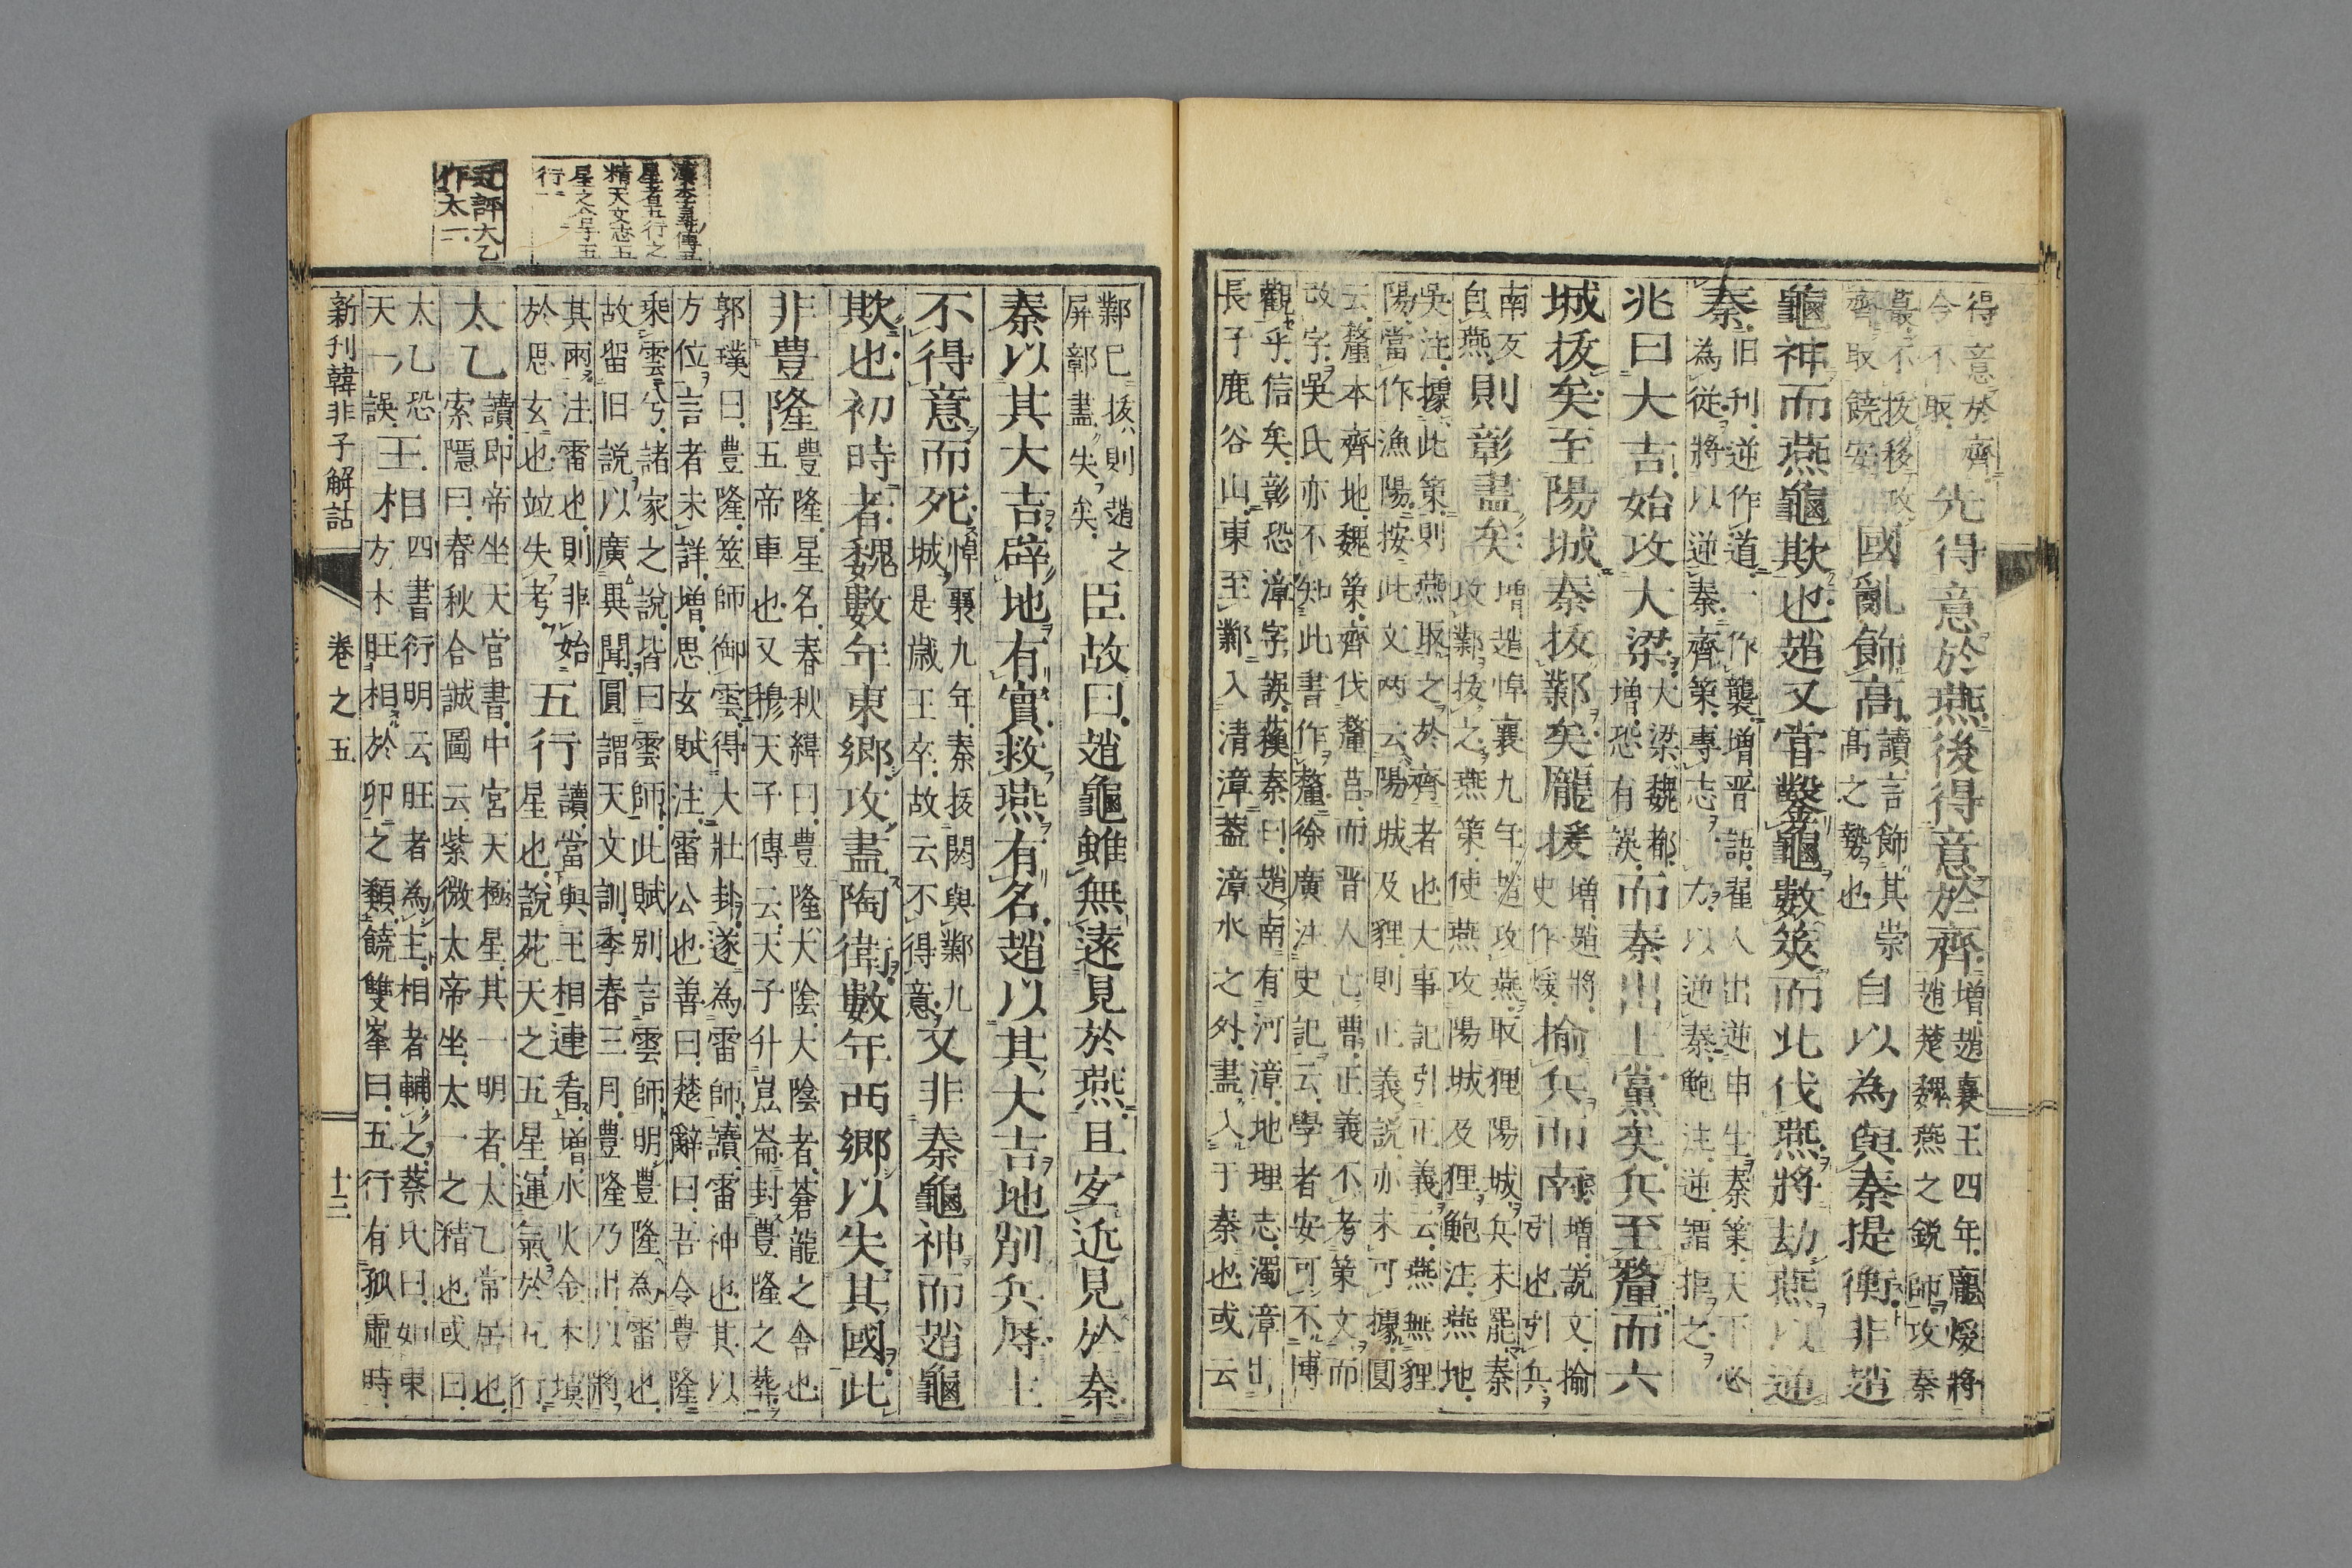 得意於齊
今不取
先得意於燕後得意於齊
增趙襄王四年龐煖將
趙楚魏燕之鋭師攻秦
蕞不拔移攻
齊取饒安
國亂飾高
讀言飾其崇
高之勢也
自以為與秦提衡非趙
龜神而燕龜欺也趙又嘗鑿龜數筴而北伐燕將劫燕以逆
秦
旧刊逆作道一作襲增晋語翟人出逆申生秦策天下必
為從將以逆秦齊策專志一力以逆秦鮑注逆謂拒之
兆曰大吉始攻大梁
大梁魏都
增恐有誤
而秦出上黨矣兵至釐而六
城拔矣至陽城秦拔鄴矣龐援
增趙將
史作煖
揄兵而南
增說文揄
引也引兵
南反
自燕
則彰盡矣
增趙悼襄九年趙攻燕取狸陽城兵未罷秦
攻鄴拔之燕策使燕攻陽城及狸鮑注燕地
吳注據此策則燕取之於齊者也大事記引正義云燕無狸
陽當作漁陽按此文两云陽城及狸則正義説亦未可據圓
云釐本齊地魏策齊伐釐莒而晋人亡曹正義不考策文而
改字吳氏亦不知此書作釐徐廣注史記云學者安可不博
觀乎信矣彰恐漳字誤蘓秦曰趙南有河漳地理志濁漳出
長子鹿谷山東至鄴入清漳蓋漳水之外盡入于秦也或云
鄴已拔則趙之
屏鄣盡失矣
臣故曰趙龜雖無遠見於燕且宐近見於秦
秦以其大吉辟地有實救燕有名趙以其大吉地削兵辱主
不得意而死
悼襄九年秦拔閼與鄴九
城是歲王卒故云不得意
又非秦龜神而趙龜
欺也初時者魏數年東鄉攻盡陶衛數年西鄉以失其國此
非豊隆
豊隆星名春秋緯曰豊隆大陰大陰者蒼龍之舎也
五帝車也又穆天子傳云天子升崑崙封豊隆之葬
郭璞曰豊隆筮師御雲得大壮卦遂為雷師讀雷神也其以
方位言者未詳增思玄賦注雷公也善曰楚辭曰吾令豊隆
乘雲兮諸家之說皆曰雲師此賦別言雲師明豊隆為雷也
故留旧説以廣異聞圓謂天文訓季春三月豊隆乃出以將
其雨注雷也則非始
於思玄也竝失考
五行
讀當與王相連看增水火金木塡
星也説苑天之五星運氣於五行
太乙
讀即帝坐天官書中宮天極星其一明者太乙常居也
索隱曰春秋合誠圖云紫微太帝坐太一之精也或曰
太乙恐
天一誤
王相
四書衍明云旺者為主相者輔之蔡氏曰如東
方木旺相於卯之類饒雙峯曰五行有孤虛時
新刊韓非子解詁
卷之五
十三
漢李尋傳五
星者五行之
精天文志五
星之合于五
行
迂評大乙
作太一